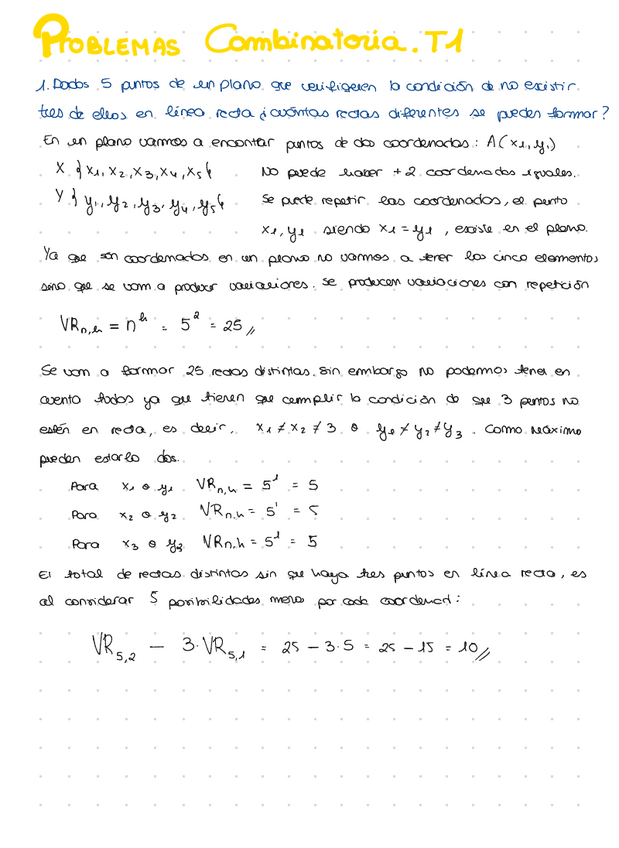 PROBLEMAS Combinatoria. T1
1. Dados 5 puntos de un plano que verifiquen la condición de no existir
tres de ellos en línea recta ¿cuántas rectas diferentes se pueden formar?
En un plano vamos a encontrar puntos de dos coordenadas: A(x₁, y₁)
X { x₁, x₂, x₃, x₄, x₅ { No puede haber +2 coordenadas iguales.
Y { y₁, y₂, y₃, y₄, y₅ { Se puede repetir las coordenadas, el punto
x₁, y₁ siendo x₁ = y₁, existe en el plano.
Ya que son coordenadas en un plano no vamos a tener los cinco elementos
sino que se van a producir variaciones. Se producen variaciones con repetición
VRn,k = nᵏ = 5² = 25 //
Se van a formar 25 rectas distintas. Sin embargo no podemos tener en
cuenta todos ya que tienen que cumplir la condición de que 3 puntos no
estén en recta, es decir, x₁ ≠ x₂ ≠ 3 o y₁ ≠ y₂ ≠ y₃. Como máximo
pueden estarlo dos.
Para x₁ o y₁ VRn,k = 5¹ = 5
Para x₂ o y₂ VRn,k = 5¹ = 5
Para x₃ o y₃ VRn,k = 5¹ = 5
El total de rectas distintas sin que haya tres puntos en línea recta, es
al considerar 5 posibilidades menos por cada coordenad:
VR₅,₂ - 3·VR₅,₁ = 25 - 3·5 = 25 - 15 = 10 //